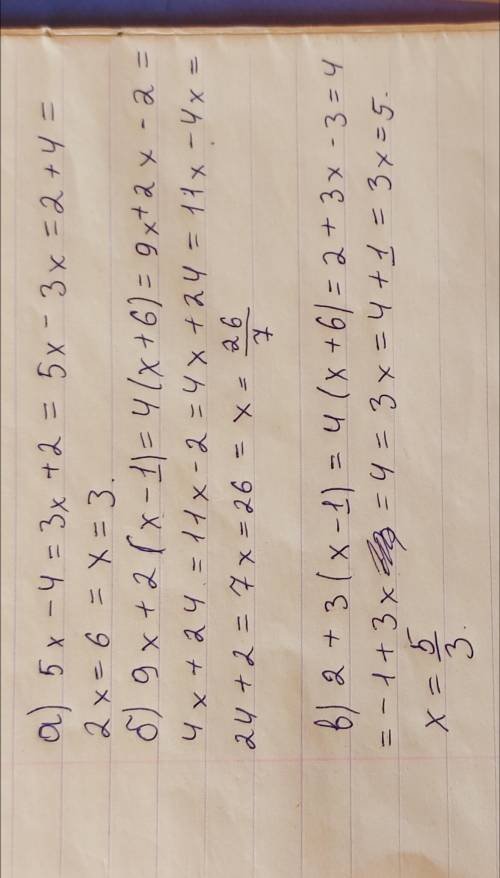 а) 5x - 4 = 3x + 2 = 5x - 3x = 2 + 4 =
2x = 6 = x = 3.
б) 9x + 2(x - 1) = 4(x + 6) = 9x + 2x - 2 =
4x + 24 = 11x - 2 = 4x + 24 = 11x - 4x =
24 + 2 = 7x = 26 = x = 26/7
в) 2 + 3(x - 1) = 4(x + 6) = 2 + 3x - 3 = 4
= -1 + 3x = 4 = 3x = 4 + 1 = 3x = 5.
x = 5/3.